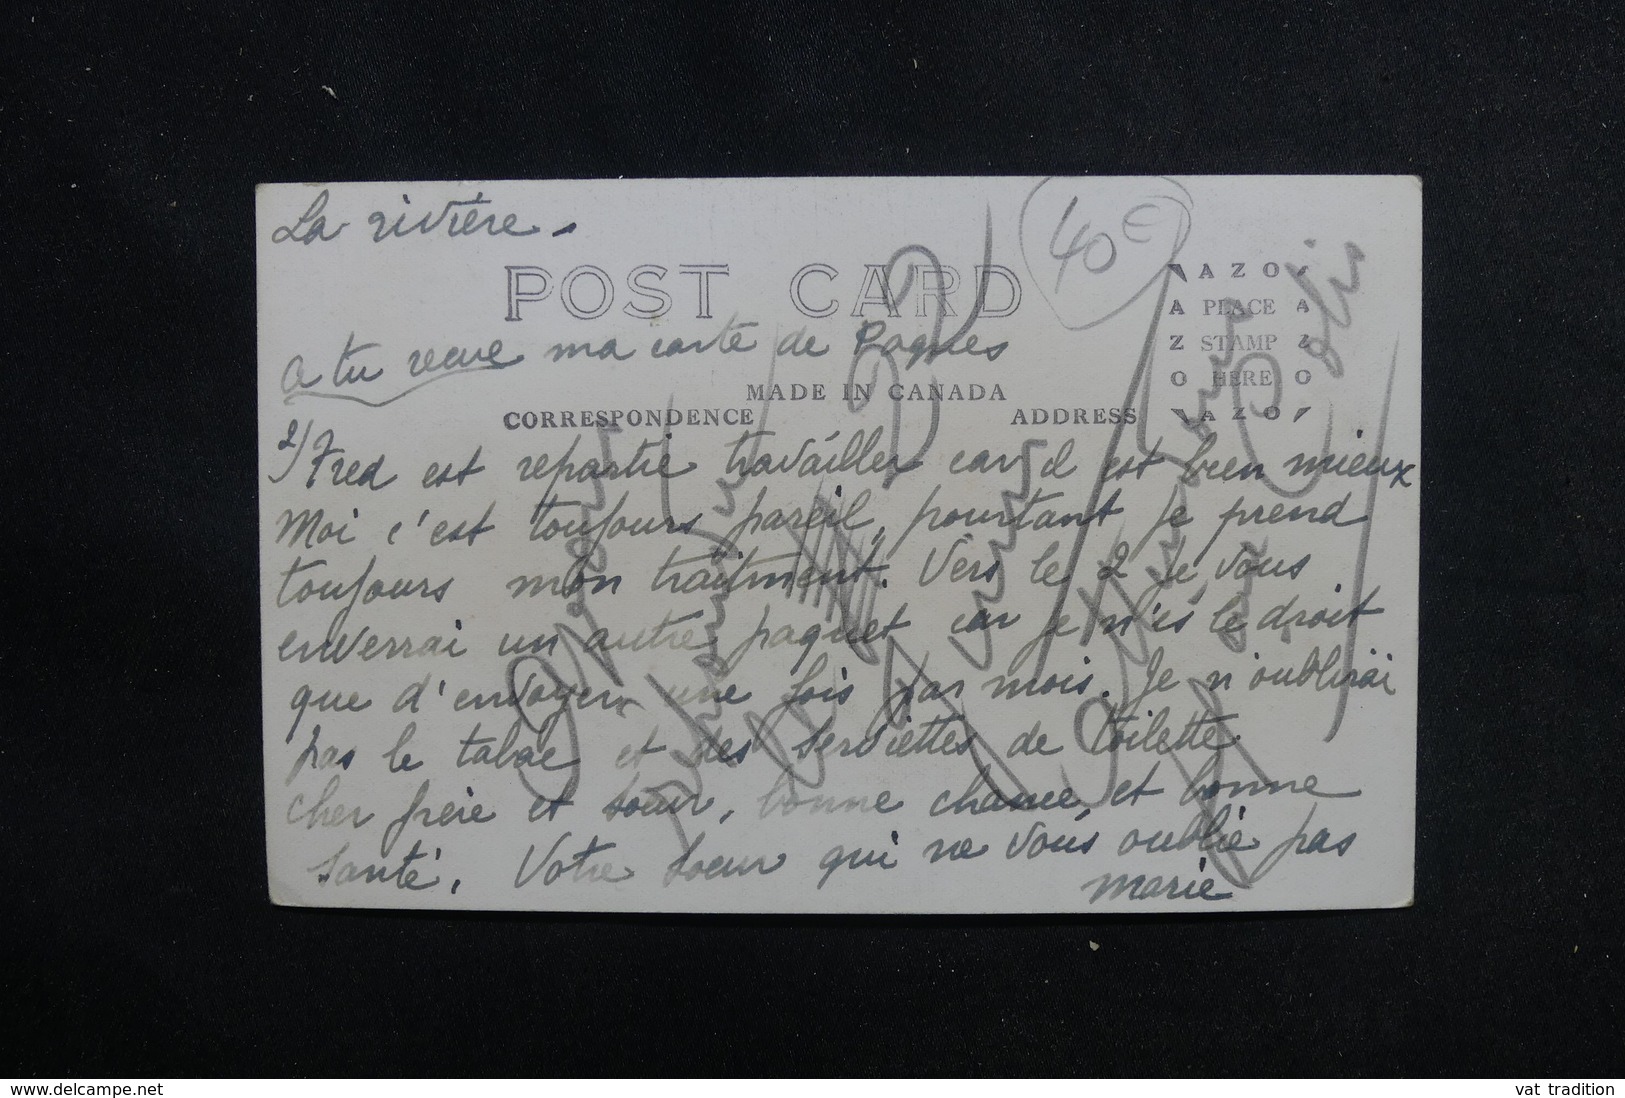 La rivière.
40€
POST CARD
AZO
A PLACE A
Z STAMP Z
O HERE O
AZO
a tu recue ma carte de Paques
MADE IN CANADA
CORRESPONDENCE ADDRESS
2/ Fred est repartie travailler car il est bien mieux
Moi c'est toujours pareil, pourtant je prend
toujours mon traitment. Vers le 2 je vous
enverrai un autre paquet car je n'is le droit
que d'envoyer une fois par mois. Je n'oublirai
pas le tabac et des serviettes de toilette.
cher frère et soeur, bonne chance, et bonne
santé. Votre soeur qui ne vous oublie pas
Marie
www.delcampe.net
vat tradition